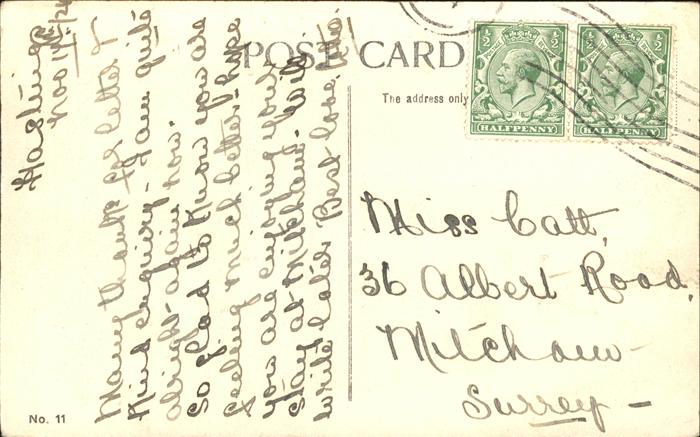 POST CARD
The address only
1/2 1/2
HALFPENNY
1/2 1/2
HALFPENNY
Hastings
Nov 19th/24
Many thanks for letter &
kind enquiry - I am quite
alright again now.
So glad to know you are
feeling much better - hope
you are enjoying your
stay at Mitcham. Will
write later Best love
Miss Catt,
36 Albert Road,
Mitcham
Surrey -
No. 11